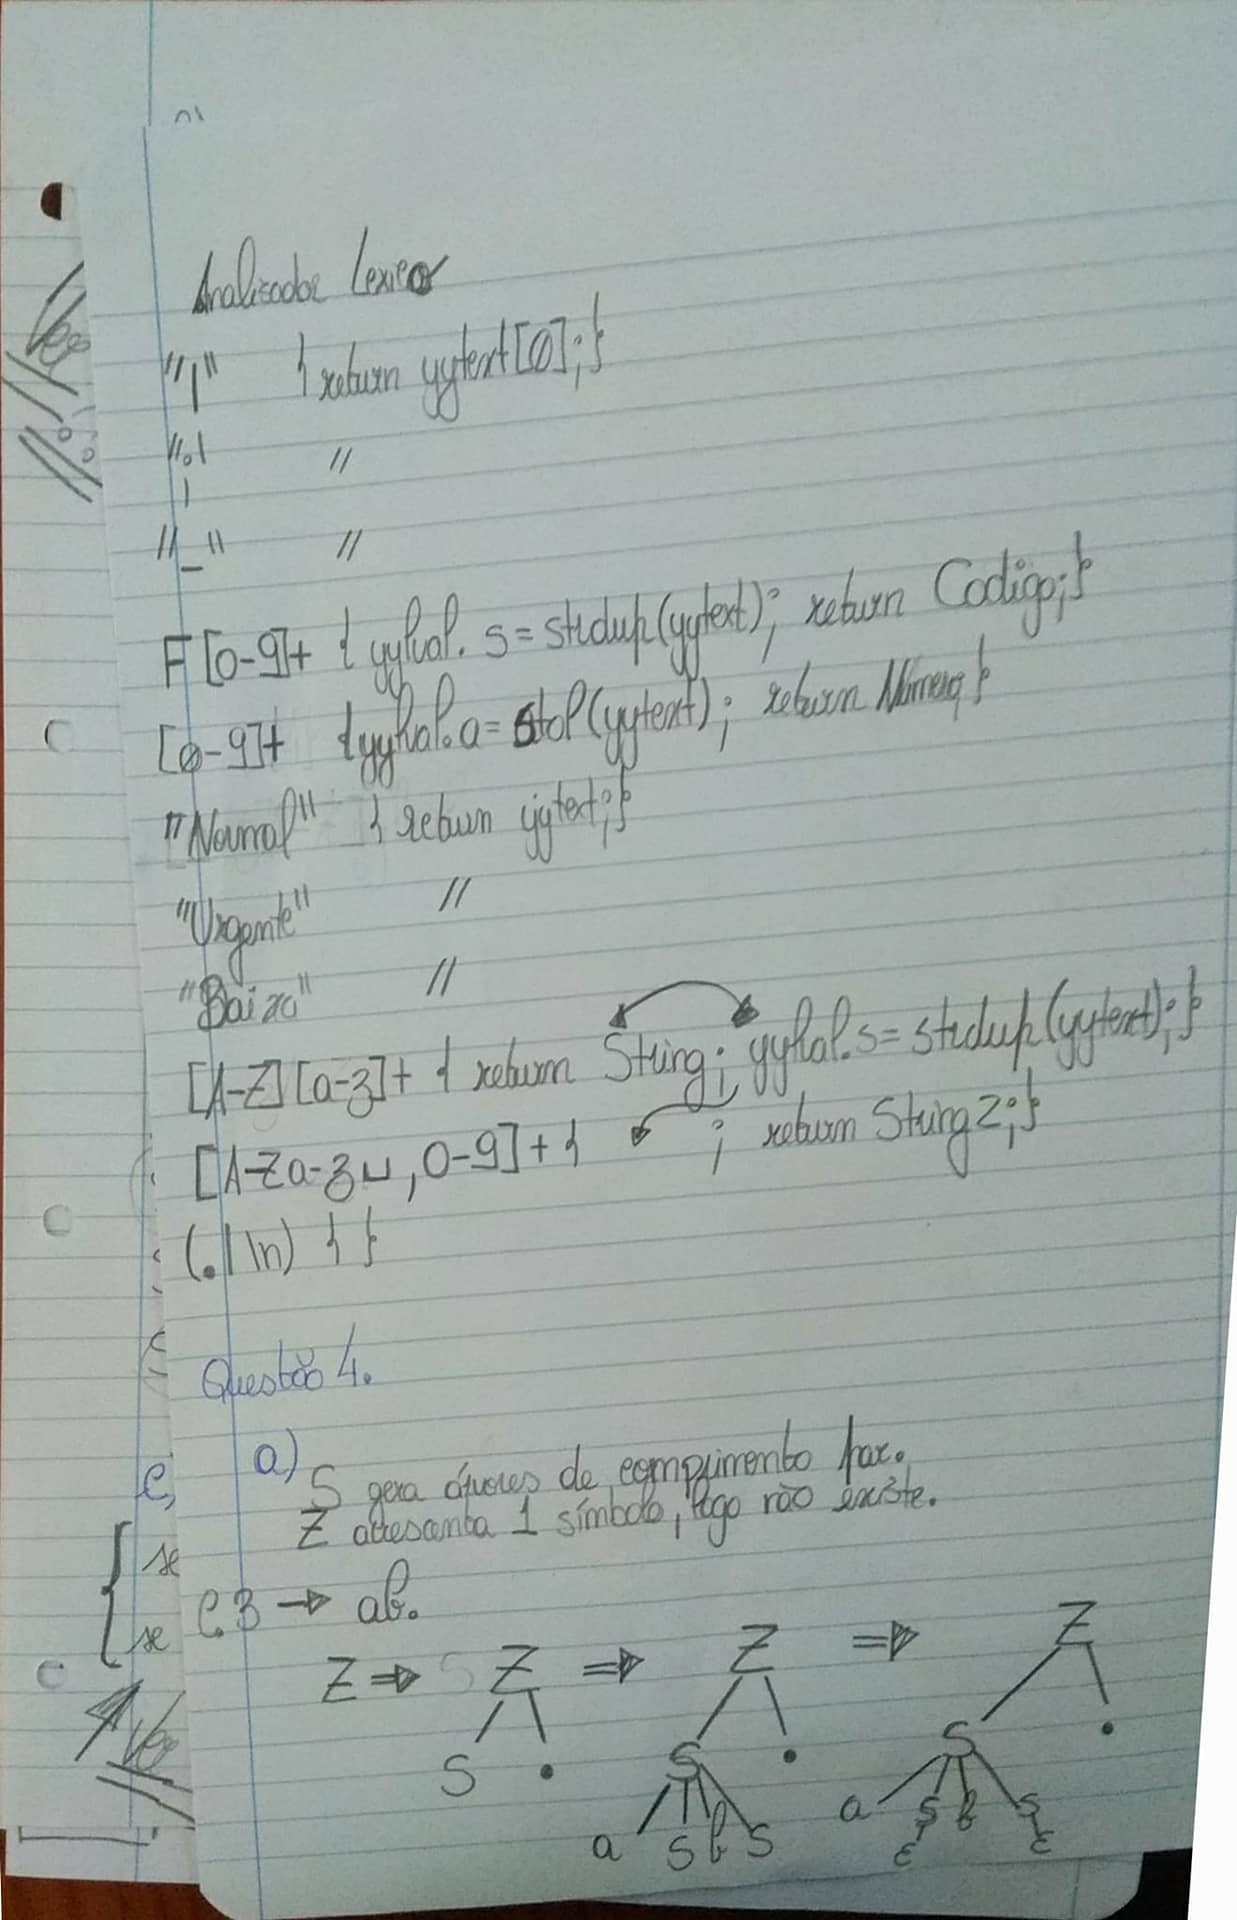 Analisador Lexico
"," { return yytext[0]; }
";" //
"_" //
F[0-9]+ { yylval.s = strdup(yytext); return Codigo; }
[0-9]+ { yylval.a = atof(yytext); return Numero; }
"Normal" { return yytext; }
"Urgente" //
"Baixa" //
[A-Z][a-z]+ { return String; yylval.s = strdup(yytext); }
[A-Za-z␣,0-9]+ { ; return String2; }
(.|\n) { }
Questão 4.
a)
S gera árvores de comprimento par.
Z acrescenta 1 símbolo, logo não existe.
→ ab.
Z ⇒ Z ⇒ Z ⇒ Z
S . S . S .
a S b S a S b S
ε ε